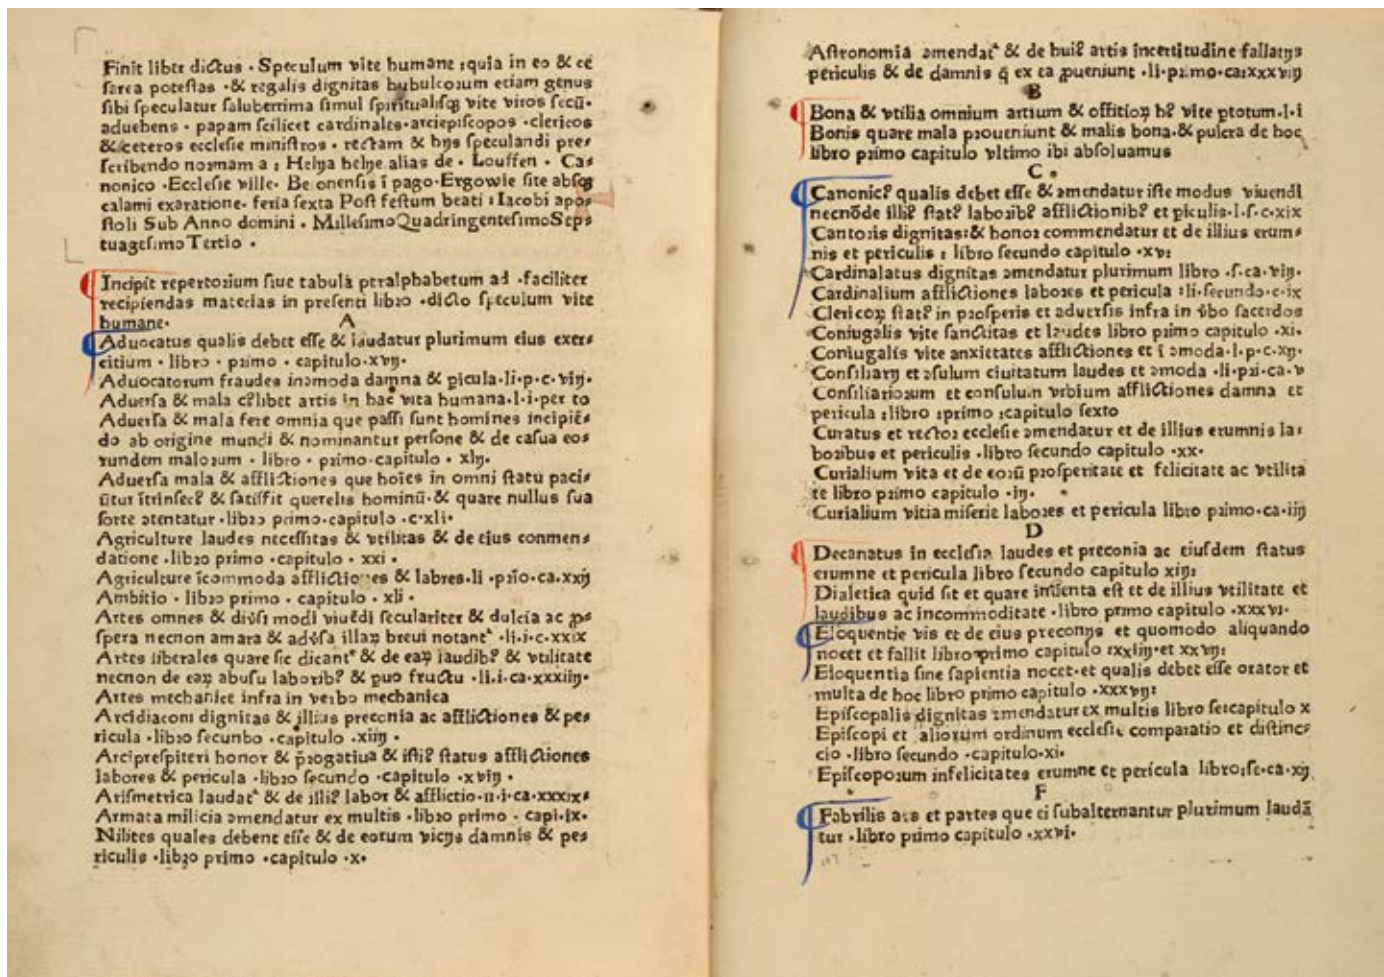 Finit liber dictus · Speculum vite humane : quia in eo & ce
sarea potestas · & regalis dignitas bubulcorum etiam genus
sibi speculatur saluberrima simul spiritualisqꝫ vite viros secū·
aduehens · papam scilicet cardinales·arciepiscopos ·clericos
& ceteros ecclesie ministros · rectam & hijs speculandi pres
scribendo normam a : Helya helye alias de · Louffen · Cas
nonico ·Ecclesie ville· Beronensis ī pago·Ergowie site absqꝫ
calami exaratione· feria sexta Post festum beati : Iacobi apos
stoli Sub Anno domini · MillesimoQuadringentesimoSeps
tuagesimoTertio ·
Incipit repertorium siue tabula peralphabetum ad ·faciliter
recipiendas materias in presenti libro ·dicto speculum vite
humane·
A
Aduocatus qualis debet esse & laudatur plurimum eius exers
citium · libro · primo · capitulo·xvij·
Aduocatorum fraudes inɔmoda damna & picula·li·p·c·viij·
Aduersa & mala cꝰlibet artis in hac vita humana·l·i·per to
Aduersa & mala fere omnia que passi sunt homines incipiēs
do ab origine mundi & nominantur persone & de casua eos
rundem malorum · libro · primo·capitulo · xlij·
Aduersa mala & afflictiones que hoies in omni statu pacis
ūtur ītrinsecꝰ & satissit querelis hominū·& quare nullus sua
sorte ɔtentatur ·libro primo·capitulo ·c·xli·
Agriculture laudes necessitas & vtilitas & de eius conmens
datione ·libro primo ·capitulo · xxi ·
Agriculture īcommoda afflictiones & labres·li ·prīo·ca·xxij
Ambitio · libro primo · capitulo · xli ·
Artes omnes & diūsi modi viuēdi seculariter & dulcia ac ꝓs
spera necnon amara & adūsa illaꝝ breui notantᵉ ·li·i·c·xxix
Artes liberales quare sic dicantᵉ & de eaꝝ laudibꝰ & vtilitate
necnon de eaꝝ abusu laboribꝰ & puo fructu ·li·i·ca·xxxiiij·
Artes mechanice infra in verbo mechanica
Arcidiaconi dignitas & illius preconia ac afflictiones & pes
ricula ·libro secunbo ·capitulo ·xiiij ·
Arciprespiteri honor & p̄rogatiua & istiꝰ status afflictiones
labores & pericula ·libro secundo ·capitulo ·xviij ·
Arismetrica laudatᵉ & de illiꝰ labor & afflictio·li·i·ca·xxxix·
Armata milicia ɔmendatur ex multis ·libro primo · capi·ix·
Nilites quales debent esse & de eorum vicijs damnis & pes
riculis ·libro primo ·capitulo ·x·
Astronomia ɔmendatᵉ & de huiꝰ artis incertitudine fallacijs
periculis & de damnis q̄ ex ea ꝓueniunt ·li·primo·ca:xxxviij
B
Bona & vtilia omnium artium & offitioꝝ hꝰ vite ptotum·l·i
Bonis quare mala proueniunt & malis bona·& pulcra de hoc
libro primo capitulo vltimo ibi absoluamus
C ·
Canonicꝰ qualis debet esse & ɔmendatur iste modus viuendi
necnōde illiꝰ statꝰ laboribꝰ afflictionibꝰ et piculis·l·s·c·xix
Cantoris dignitas:& honor commendatur et de illius erums
nis et periculis : libro secundo capitulo ·xv:
Cardinalatus dignitas ɔmendatur plurimum libro ·s·ca·viij·
Cardinalium afflictiones labores et pericula :li·secundo·c·ix
Clericoꝝ statꝰ in prosperis et aduersis infra in v̄bo sacerdos
Coniugalis vite sanctitas et laudes libro primo capitulo ·xi·
Coniugalis vite anxietates afflictiones et ī ɔmoda·l·p·c·xij·
Consiliarij et ɔsulum ciuitatum laudes et ɔmoda ·li·pri·ca·v
Consiliariorum et consulum vrbium afflictiones damna et
pericula :libro :primo :capitulo sexto
Curatus et rector ecclesie ɔmendatur et de illius erumnis las
boribus et periculis ·libro secundo capitulo ·xx·
Curialium vita et de eorū prosperitate et felicitate ac vtilita
te libro primo capitulo ·iij·
Curialium vitia miserie labores et pericula libro primo·ca·iiij
D
Decanatus in ecclesia laudes et preconia ac eiusdem status
erumne et pericula libro secundo capitulo xiij:
Dialetica quid sit et quare inuenta est et de illius vtilitate et
laudibus ac incommoditate ·libro primo capitulo ·xxxvi·
Eloquentie vis et de eius preconijs et quomodo aliquando
nocet et fallit libro primo capitulo :xxiiij·et xxvij:
Eloquentia sine sapientia nocet·et qualis debet esse orator et
multa de hoc libro primo capitulo ·xxxvij:
Episcopalis dignitas ɔmendatur ex multis libro se:capitulo x
Episcopi et aliorum ordinum ecclesie comparatio et distincs
cio ·libro secundo ·capitulo·xi·
Episcoporum infelicitates erumne et pericula libro:se·ca·xij
F
Fabrilis ars et partes que ei subalternantur plurimum laudā
tur ·libro primo capitulo ·xxvi·